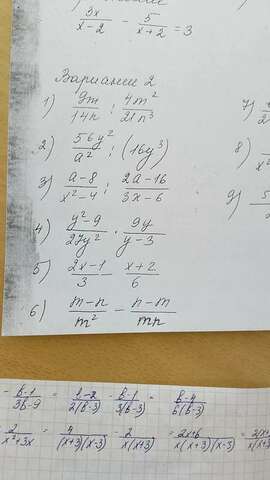 3x/(x-2) - 5/(x+2) = 3
Вариант 2
1) 9m/14n : 4m²/21n³
7)
2) 56y²/a² : (16y³)
8)
3) (a-8)/(x²-4) : (2a-16)/(3x-6)
9) 5
4) (y²-9)/27y² · 9y/(y-3)
5) (2x-1)/3 - (x+2)/6
6) (m-n)/m² - (n-m)/mn
- (b-1)/(3b-9) = (b-2)/2(b-3) - (b-1)/3(b-3) = (b-4)/6(b-3)
2/(x²+3x) = 4/(x+3)(x-3) - 2/x(x+3) = (2x+6)/x(x+3)(x-3) =